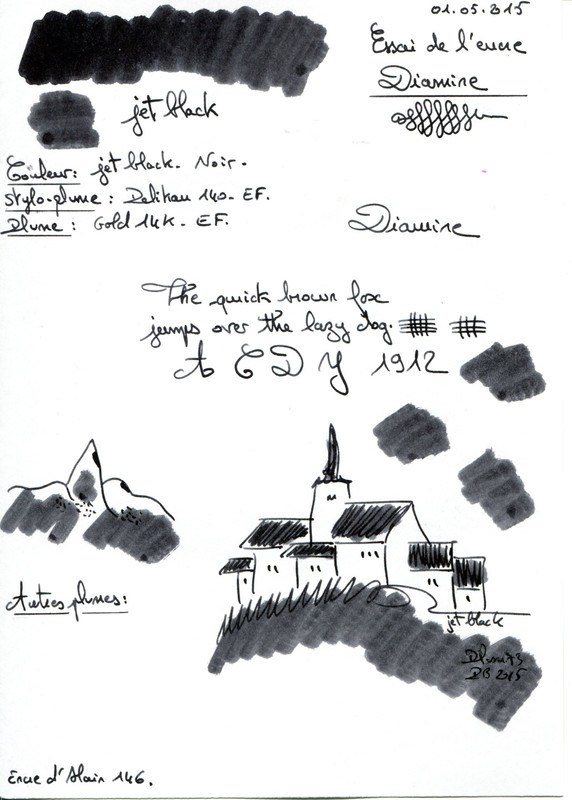 01.05.2015
Essai de l'encre
Diamine
jet black
Couleur: jet black. Noir.
Stylo-plume: Pelikan 140. EF.
Plume: Gold 14k. EF.
Diamine
The quick brown fox
jumps over the lazy dog.
A C D Y 1912
Autres plumes:
jet black
DB 2015
Encre d'Alain 146.